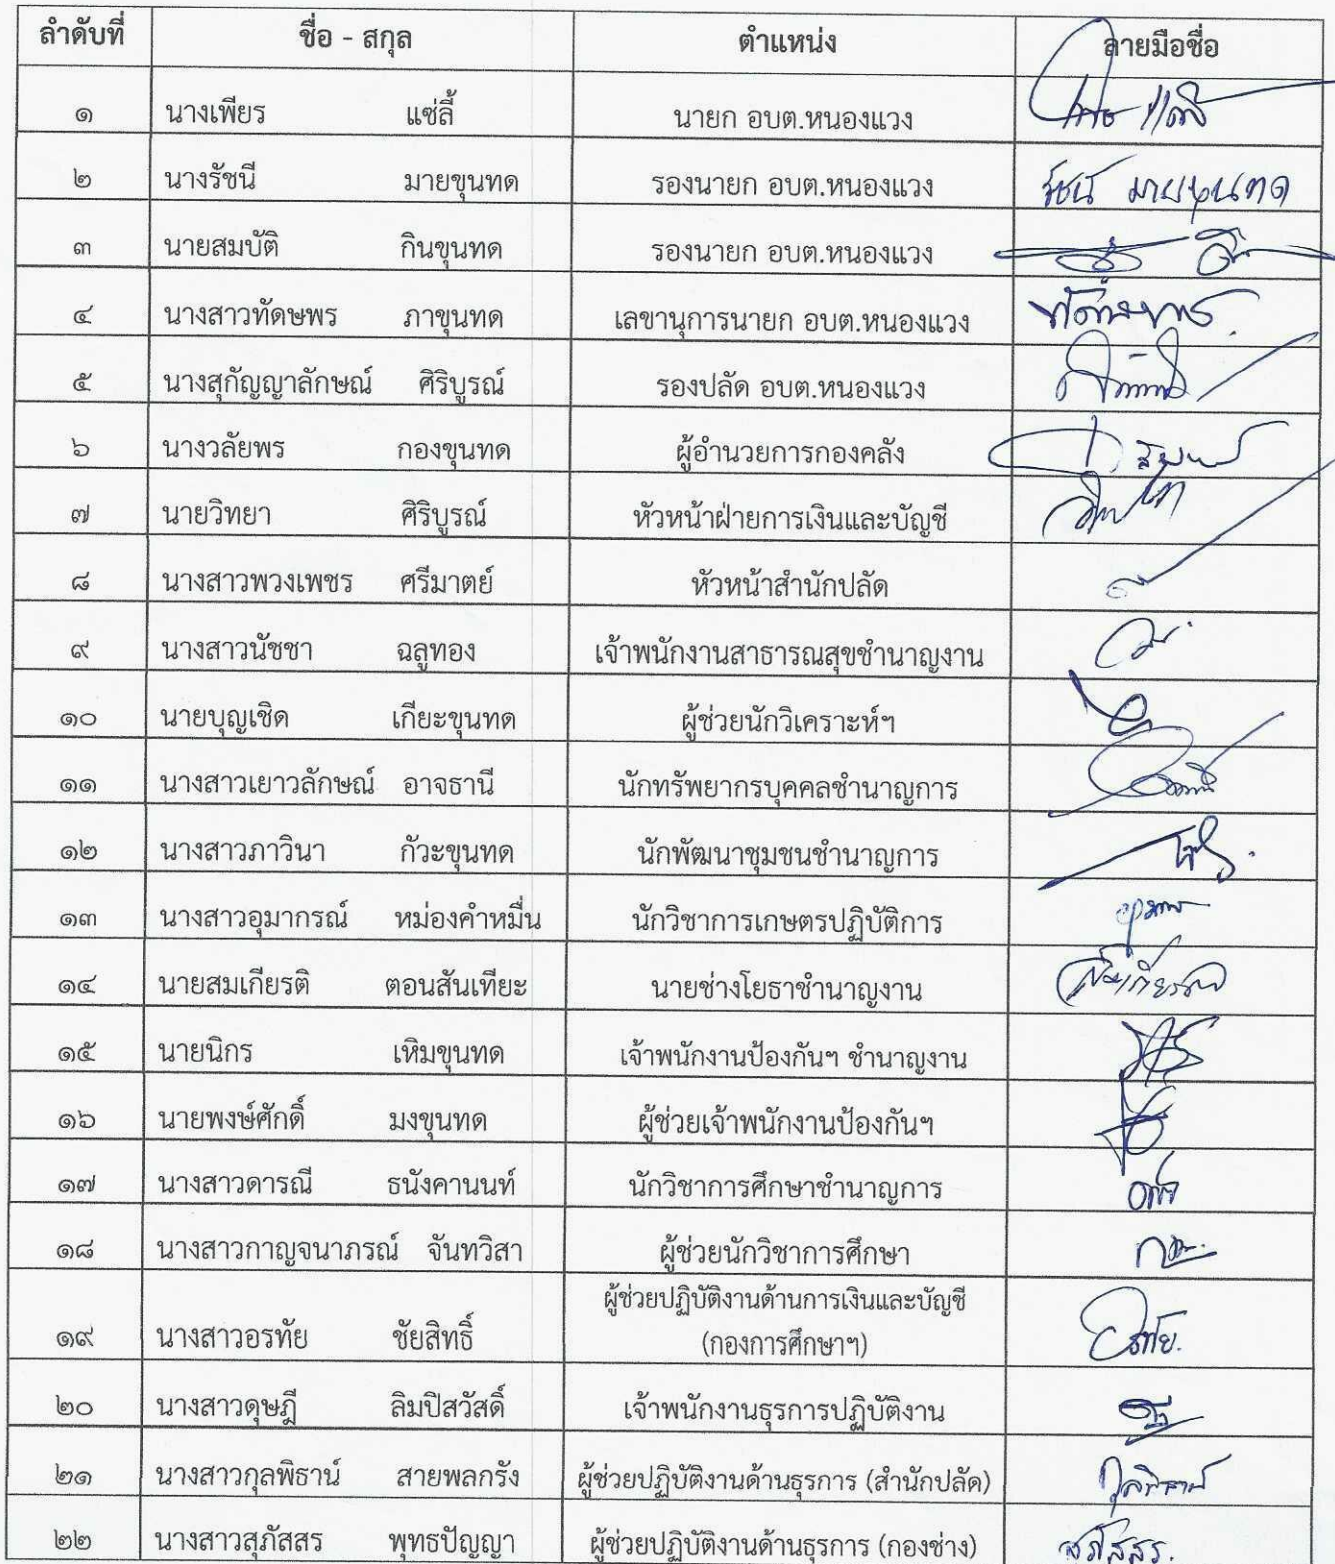 ลำดับที่ ชื่อ - สกุล ตำแหน่ง ลายมือชื่อ
๑ นางเพียร แซ่ลี้ นายก อบต.หนองแวง
๒ นางรัชนี มายขุนทด รองนายก อบต.หนองแวง รัชนี มายขุนทด
๓ นายสมบัติ กินขุนทด รองนายก อบต.หนองแวง
๔ นางสาวทัดษพร ภาขุนทด เลขานุการนายก อบต.หนองแวง
๕ นางสุกัญญาลักษณ์ ศิริบูรณ์ รองปลัด อบต.หนองแวง
๖ นางวลัยพร กองขุนทด ผู้อำนวยการกองคลัง
๗ นายวิทยา ศิริบูรณ์ หัวหน้าฝ่ายการเงินและบัญชี
๘ นางสาวพวงเพชร ศรีมาตย์ หัวหน้าสำนักปลัด
๙ นางสาวนัชชา ฉลูทอง เจ้าพนักงานสาธารณสุขชำนาญงาน
๑๐ นายบุญเชิด เกียะขุนทด ผู้ช่วยนักวิเคราะห์ฯ
๑๑ นางสาวเยาวลักษณ์ อาจธานี นักทรัพยากรบุคคลชำนาญการ
๑๒ นางสาวภาวินา กัวะขุนทด นักพัฒนาชุมชนชำนาญการ
๑๓ นางสาวอุมากรณ์ หม่องคำหมื่น นักวิชาการเกษตรปฏิบัติการ
๑๔ นายสมเกียรติ ตอนสันเทียะ นายช่างโยธาชำนาญงาน
๑๕ นายนิกร เหิมขุนทด เจ้าพนักงานป้องกันฯ ชำนาญงาน
๑๖ นายพงษ์ศักดิ์ มงขุนทด ผู้ช่วยเจ้าพนักงานป้องกันฯ
๑๗ นางสาวดารณี ธนังคานนท์ นักวิชาการศึกษาชำนาญการ
๑๘ นางสาวกาญจนาภรณ์ จันทวิสา ผู้ช่วยนักวิชาการศึกษา
ผู้ช่วยปฏิบัติงานด้านการเงินและบัญชี
๑๙ นางสาวอรทัย ชัยสิทธิ์ (กองการศึกษาฯ) อรทัย.
๒๐ นางสาวดุษฎี ลิมปิสวัสดิ์ เจ้าพนักงานธุรการปฏิบัติงาน
๒๑ นางสาวกุลพิธาน์ สายพลกรัง ผู้ช่วยปฏิบัติงานด้านธุรการ (สำนักปลัด) กุลพิธาน์
๒๒ นางสาวสุภัสสร พุทธปัญญา ผู้ช่วยปฏิบัติงานด้านธุรการ (กองช่าง) สุภัสสร.